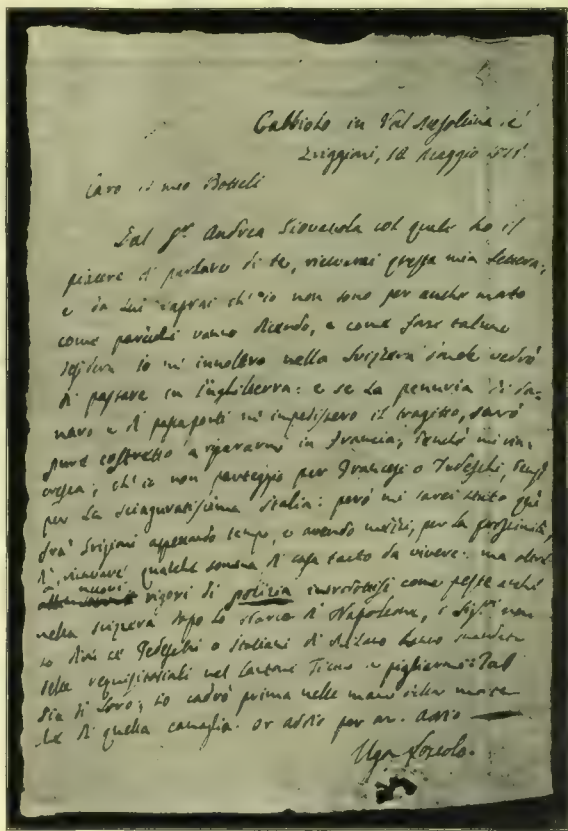 Gabbiolo in Val Mesolcina ne'
Griggioni, 18 Maggio 1815.
Caro il mio Bottelli
Dal Sr. Andrea Giovanola col quale ho il
piacere di parlare di te, riceverai questa mia lettera,
e da lui saprai ch'io non sono per anche morto
come parecchi vanno dicendo, e come forse taluno
desidera. Io m'innoltro nella Svizzera donde vedrò
di passare in Inghilterra: e se la penuria di da-
naro e di passaporti m'impedissero il tragitto, sarò
pure costretto a ripararmi in Francia; benchè m'in-
cresca; ch'io non parteggio per Francesi o Tedeschi, bensì
per la sciaguratissima Italia: però mi sarei stato quì
fra' Grigioni aspettando tempo, e avendo per la prossimità,
di ricavare qualche somma di casa tanto da vivere: ma oltre
nuovi rigori di polizia introdottisi come peste anche
nella Svizzera dopo lo sbarco di Napoleone, i Sigri. non
so dire se Tedeschi o Italiani di Milano hanno mandato
delle nel Cantone Ticino a pigliarmi: Tal
sia di loro; io cadrò prima nelle mani della morte
che di quella canaglia. Or addio per or. addio
Ugo Foscolo.